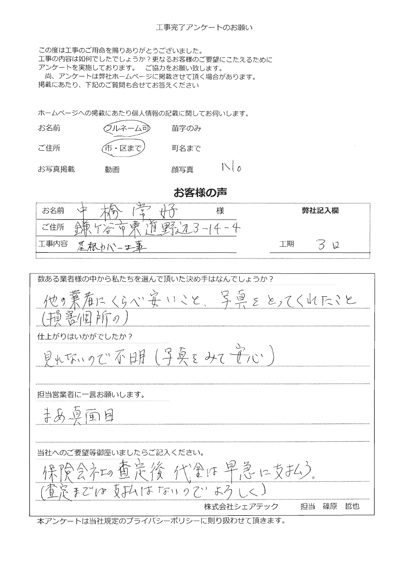 工事完了アンケートのお願い
この度は工事のご用命を賜りありがとうございました。
工事の内容は如何でしたでしょうか？更なるお客様のご要望にこたえるために
アンケートを実施しております。 ご協力をお願い致します。
尚、アンケートは弊社ホームページに掲載させて頂く場合があります。
掲載にあたり、下記のご質問も合せてお答えください
ホームページへの掲載にあたり個人情報の記載に関してお伺いします。
お名前 フルネーム可 苗字のみ
ご住所 市・区まで 町名まで
お写真掲載 動画 顔写真 No
お客様の声
お名前 中橋常好 様 弊社記入欄
ご住所 鎌ケ谷市東道野辺3-14-4
工事内容 屋根カバー工事 工期 3日
数ある業者様の中から私たちを選んで頂いた決め手はなんでしょうか？
他の業者にくらべ安いこと、写真をとってくれたこと
(損害個所の)
仕上がりはいかがでしたか？
見れないので不明(写真をみて安心)
担当営業者に一言お願いします。
まあ真面目
当社へのご要望等御座いましたらご記入ください。
保険会社の査定後代金は早急に支払う。
(査定までは支払はないのでよろしく)
株式会社シェアテック 担当 篠原 哲也
本アンケートは当社規定のプライバシーポリシーに則り扱わせて頂きます。